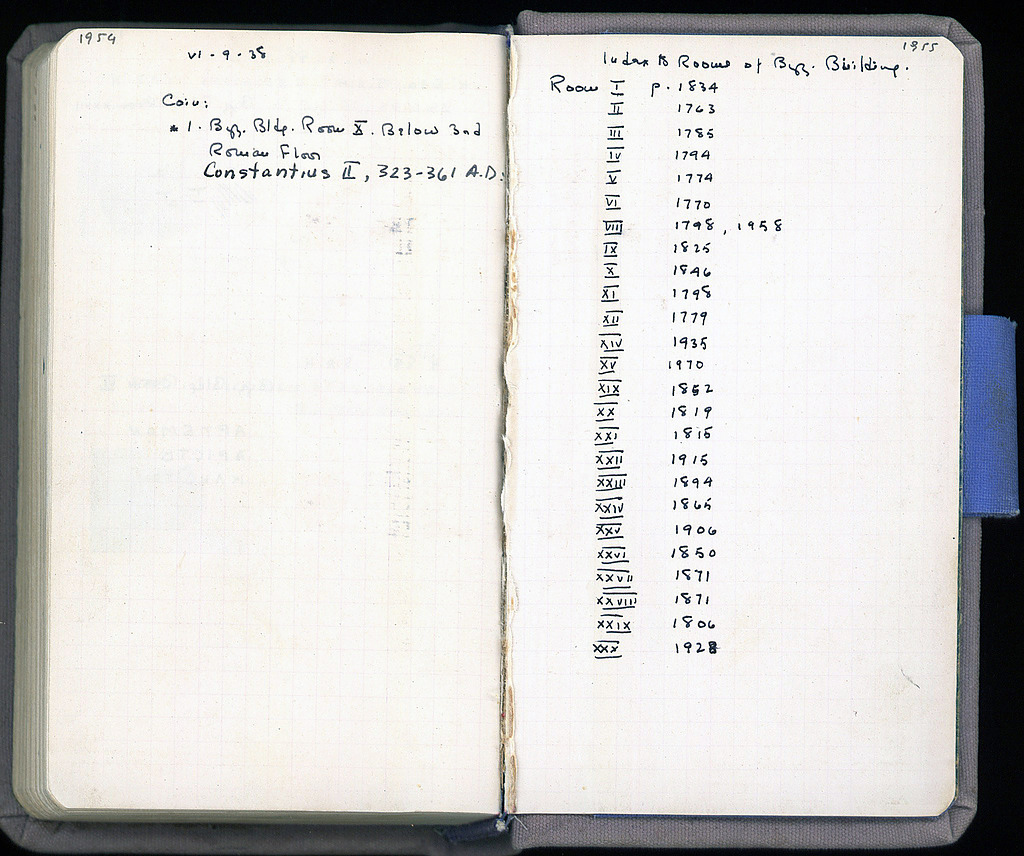 1954
VI - 9 - 38
Coin:
* 1. Byz. Bldg. Room X. Below 3rd
Roman Floor
Constantius II, 323-361 A.D.
1955
Index to Rooms of Byz. Building.
Room I p. 1834
II 1763
III 1785
IV 1794
V 1774
VI 1770
VII 1798, 1958
IX 1825
X 1846
XI 1798
XII 1779
XIV 1935
XV 1970
XIX 1852
XX 1819
XXI 1815
XXII 1915
XXIII 1894
XXIV 1865
XXV 1906
XXVI 1850
XXVII 1871
XXVIII 1871
XXIX 1806
XXX 1928